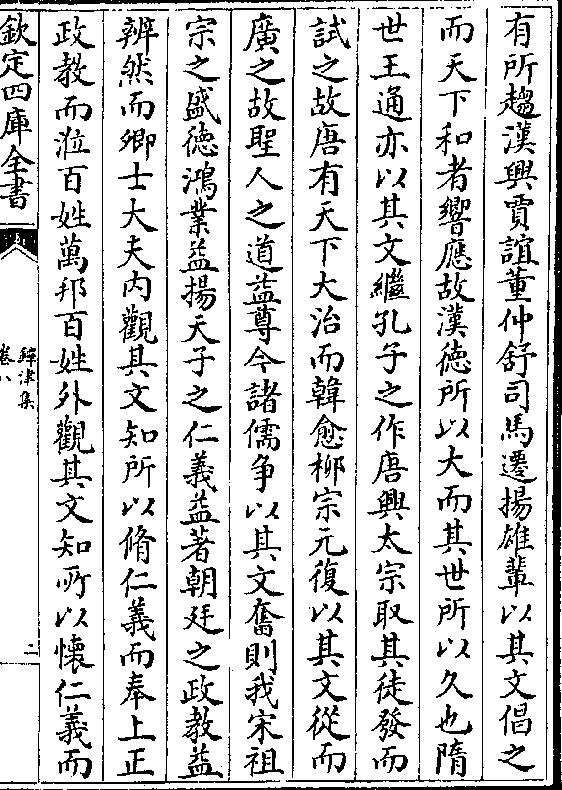 有所趨漢興賈誼董仲舒司馬遷揚雄輩以其文倡之
而天下和者響應故漢徳所以大而其世所以久也隋
世王通亦以其文繼孔子之作唐興太宗取其徒發而
試之故唐有天下大治而韓愈柳宗元復以其文從而
廣之故聖人之道益尊今諸儒争以其文奮則我宋祖
宗之盛徳鴻業益揚天子之仁義益著朝廷之政教益
辨然而卿士大夫内觀其文知所以脩仁義而奉上正
政教而涖百姓萬邦百姓外觀其文知所以懷仁義而
欽定四庫全書
鐔津集
卷八
二